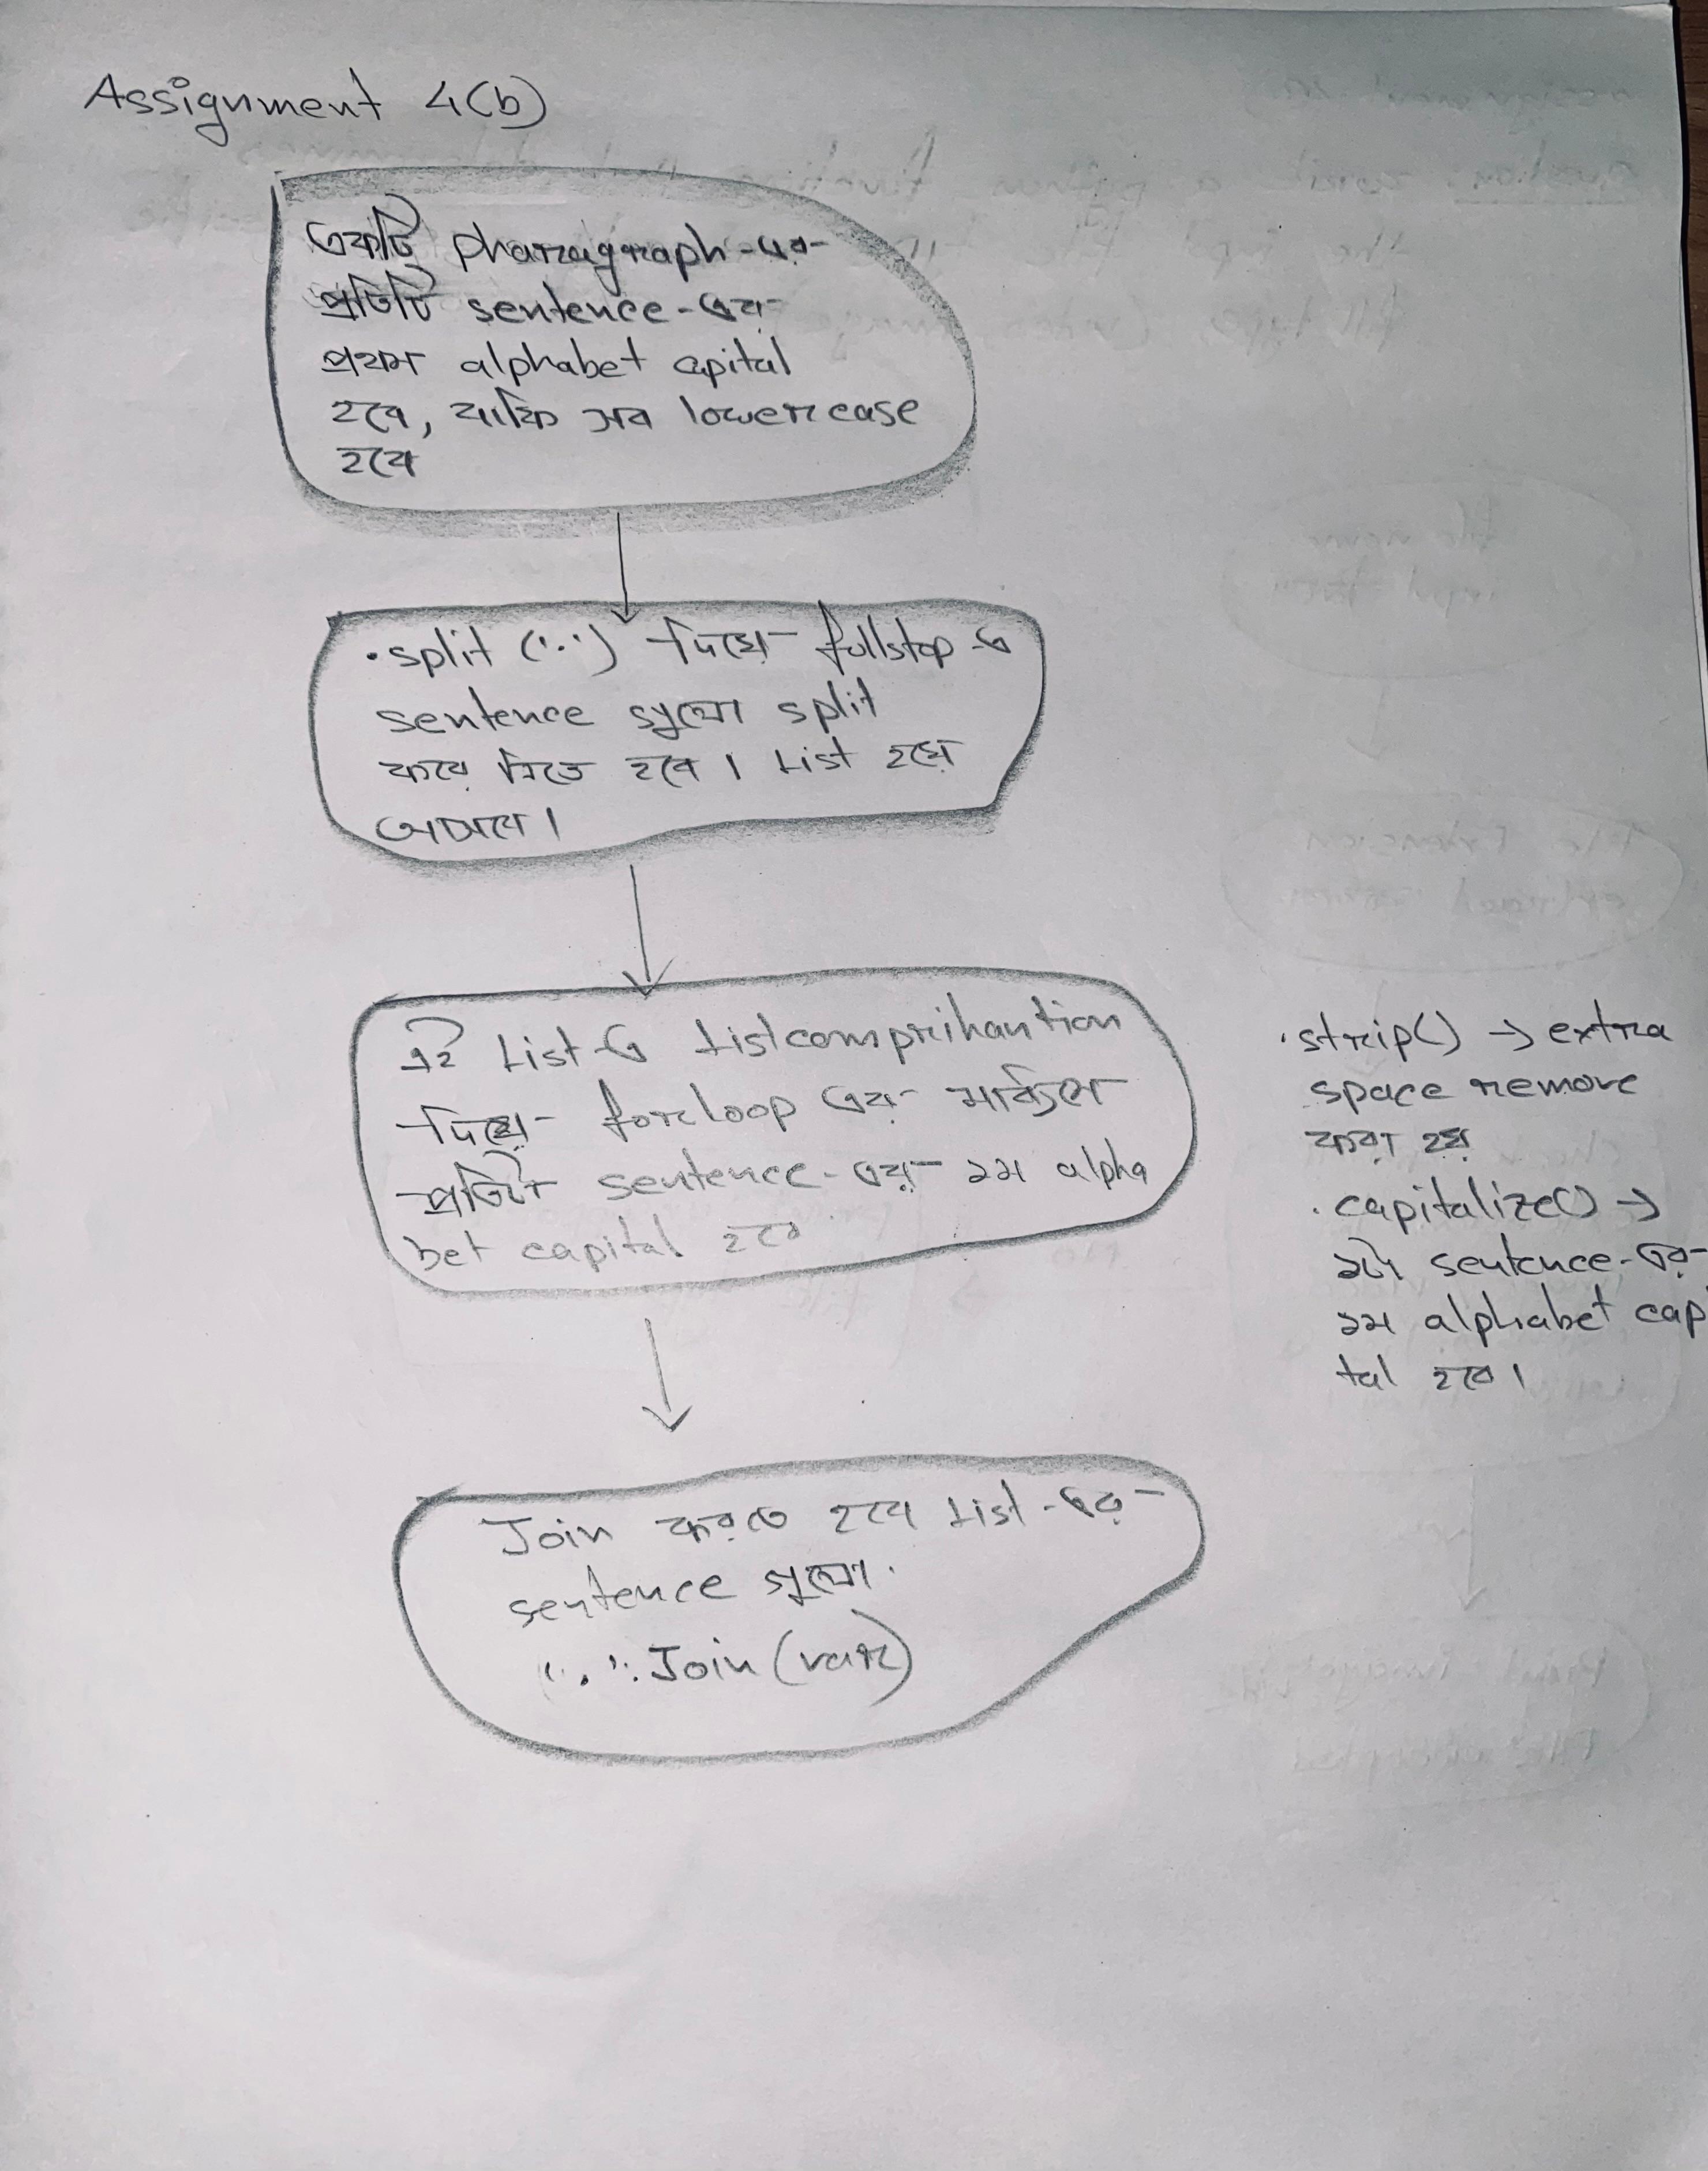 Assignment 4(b)
একটি pharagraph-এর
প্রতিটি sentence-এর
প্রথম alphabet capital
হবে, বাকি সব lowercase
হবে
.split ('.') দিয়ে fullstop-এ
sentence গুলো split
করে নিতে হবে। List হয়ে
আসবে।
এই List এ Listcomprihantion
দিয়ে forloop এর মাধ্যমে
প্রতিটি sentence-এর ১ম alpha
bet capital হবে
.strip() → extra
space remove
করা হয়
.capitalize() →
sentence-এর
১ম alphabet capi
tal হবে।
Join করতে হবে List-এর
sentence গুলো.
'. '.Join (var)